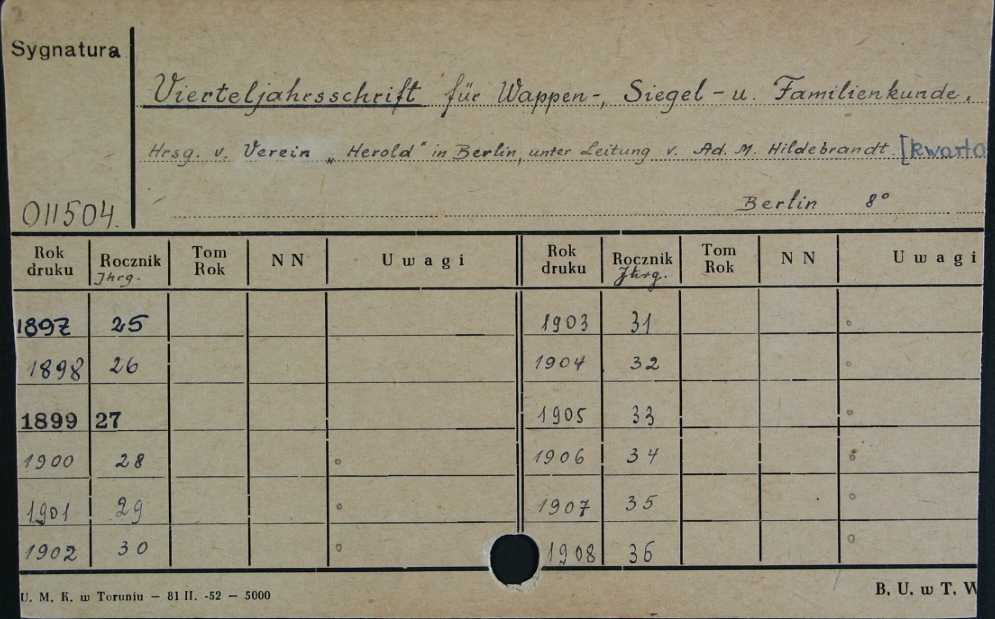 Sygnatura
Vierteljahrsschrift für Wappen-, Siegel- u. Familienkunde.
Hrsg. v. Verein „Herold" in Berlin, unter Leitung v. Ad. M. Hildebrandt [kwarta
Berlin 8°
011504.
Rok druku Rocznik Jhrg. Tom Rok N N Uwagi Rok druku Rocznik Jhrg. Tom Rok N N Uwagi
1897 25 1903 31
1898 26 1904 32
1899 27 1905 33
1900 28 1906 34
1901 29 1907 35
1902 30 1908 36
U. M. K. w Toruniu — 81 II. -52 — 5000 B. U. w T. W